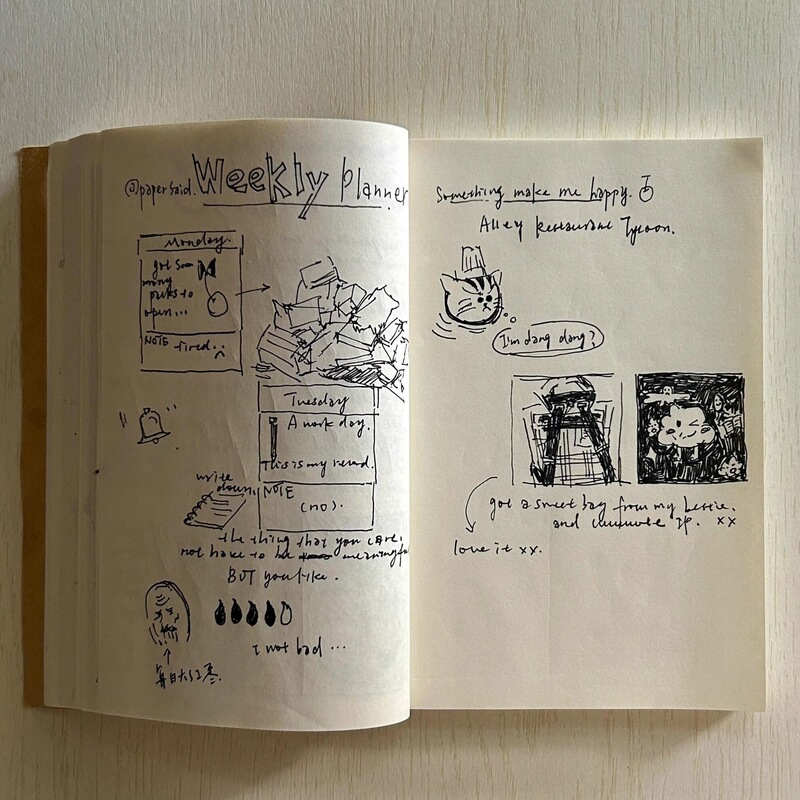 @papersaid. Weekly planner
Monday.
got so
many
pucks to
open...
NOTE
tired..
Tuesday
A work day.
This is my
NOTE
(no).
write
down.
the thing that you care.
not have to be meaningfu
BUT you like.
I not bad ...
每日大红枣.
Something make me happy.
Alley Restaurant Tycoon.
I'm dang dang?
got a sweet bag from my bestie.
and IP. xx
love it xx.